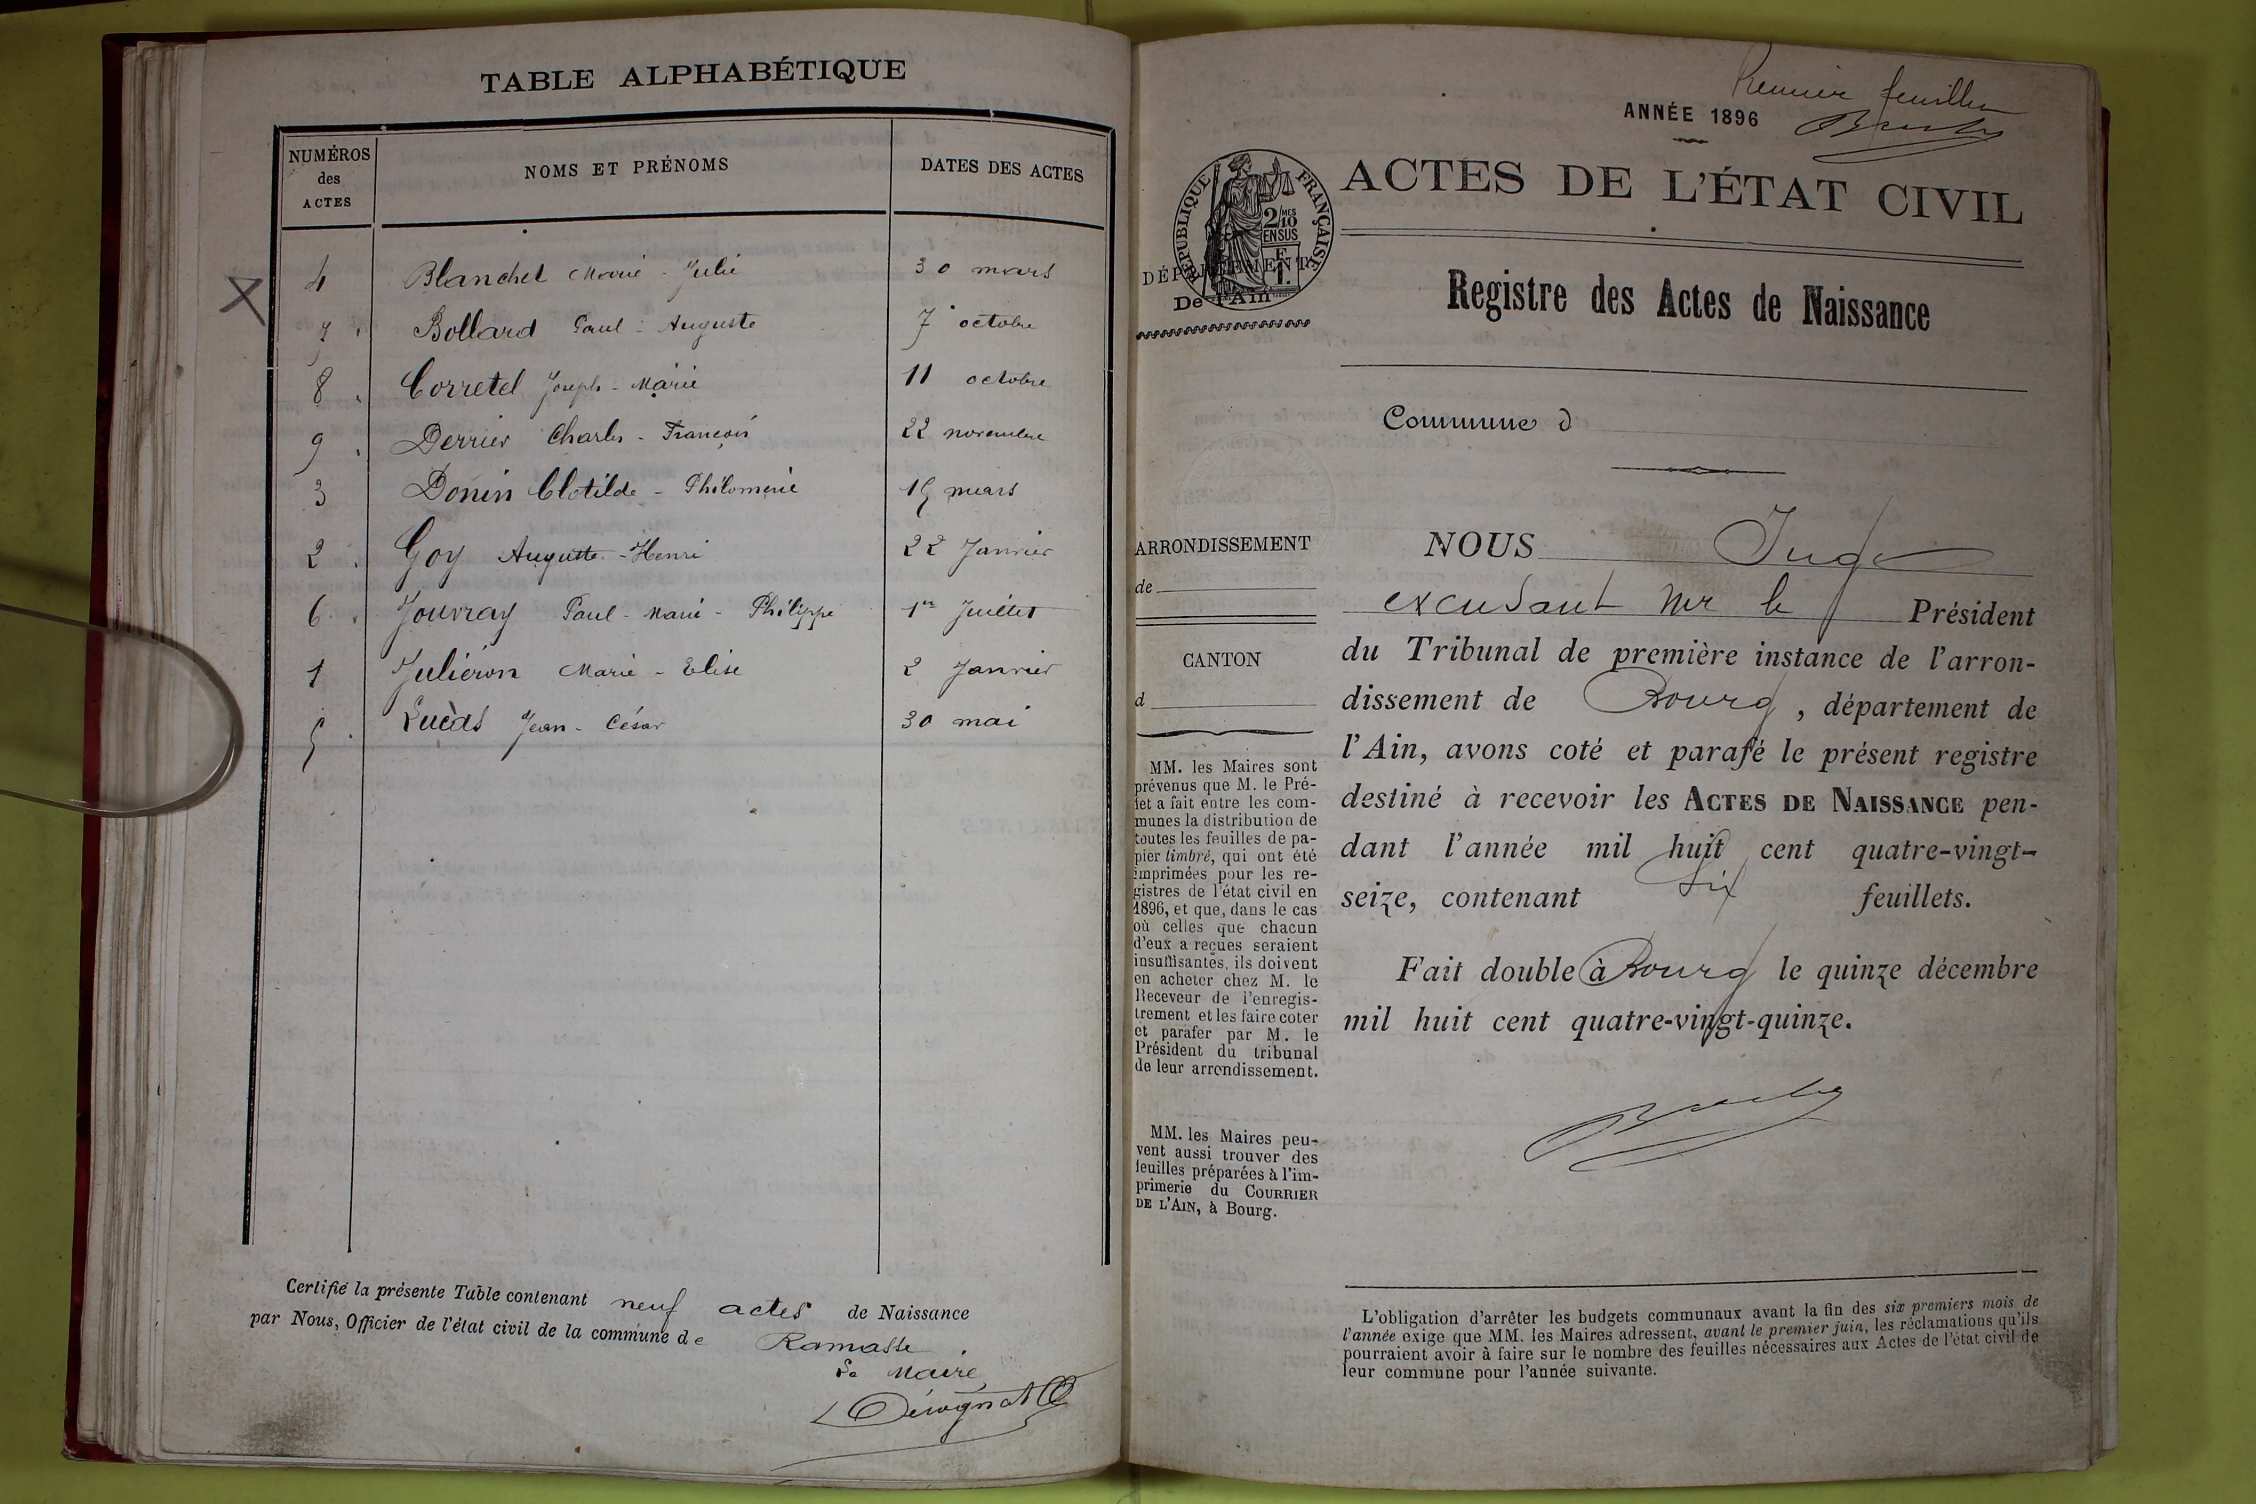 TABLE ALPHABÉTIQUE
NUMÉROS des ACTES NOMS ET PRÉNOMS DATES DES ACTES
4 Blanchet Marie - Julie 30 mars
7 Bollard Paul - Auguste 7 octobre
8 Corretel Joseph - Marie 11 octobre
9 Derrier Charles - François 22 novembre
3 Donin Clotilde - Philomène 15 mars
2 Goy Auguste - Henri 22 Janvier
6 Jouvray Paul - Marie - Philippe 1er Juillet
1 Juliéron Marie - Elise 2 Janvier
5 Jean - César 30 mai
Certifié la présente Table contenant neuf actes de Naissance
par Nous, Officier de l'état civil de la commune de Ramasse
Le Maire
Premier feuillet
ANNÉE 1896
ACTES DE L'ÉTAT CIVIL
RÉPUBLIQUE FRANÇAISE
2/10 MES
EN SUS
DÉPARTEMENT
De l'Ain
Registre des Actes de Naissance
Commune d
ARRONDISSEMENT
de
CANTON
d
MM. les Maires sont
prévenus que M. le Pré-
fet a fait entre les com-
munes la distribution de
toutes les feuilles de pa-
pier timbré, qui ont été
imprimées pour les re-
gistres de l'état civil en
1896, et que, dans le cas
où celles que chacun
d'eux a reçues seraient
insuffisantes, ils doivent
en acheter chez M. le
Receveur de l'enregis-
trement et les faire coter
et parafer par M. le
Président du tribunal
de leur arrondissement.
MM. les Maires peu-
vent aussi trouver des
feuilles préparées à l'im-
primerie du COURRIER
DE L'AIN, à Bourg.
NOUS Juge
excusant Mr le Président
du Tribunal de première instance de l'arron-
dissement de Bourg, département de
l'Ain, avons coté et parafé le présent registre
destiné à recevoir les ACTES DE NAISSANCE pen-
dant l'année mil huit cent quatre-vingt-
seize, contenant six feuillets.
Fait double à Bourg le quinze décembre
mil huit cent quatre-vingt-quinze.
L'obligation d'arrêter les budgets communaux avant la fin des six premiers mois de
l'année exige que MM. les Maires adressent, avant le premier juin, les réclamations qu'ils
pourraient avoir à faire sur le nombre des feuilles nécessaires aux Actes de l'état civil de
leur commune pour l'année suivante.